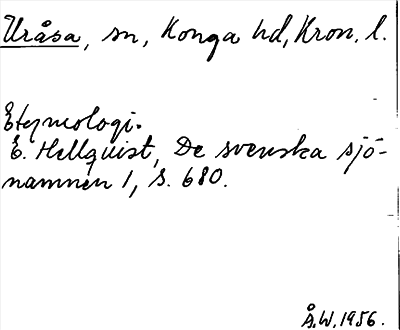 Uråsa, sn, Konga hd, Kron. l.
Etymologi.
E. Hellquist, De svenska sjö-
namnen 1, s. 680.
Å.W. 1956.